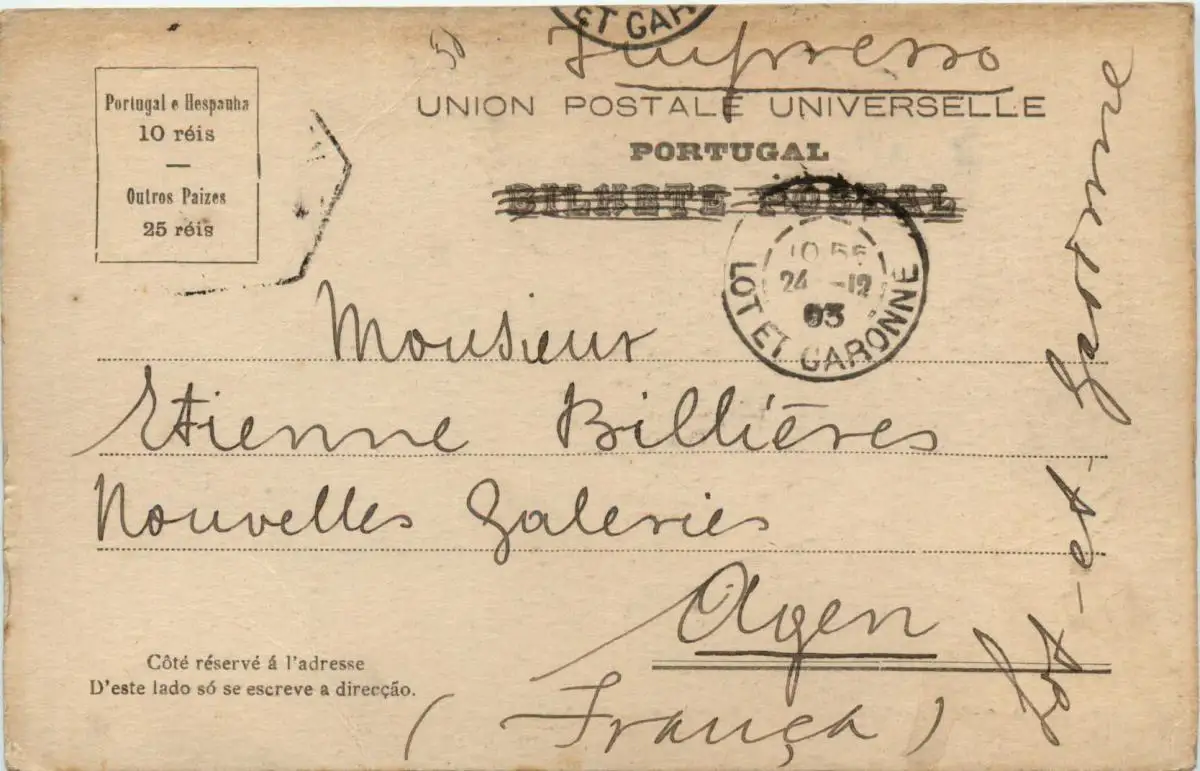 ET GAR
Impresso
UNION POSTALE UNIVERSELLE
PORTUGAL
BILHETE POSTAL
Portugal e Hespanha
10 réis
Outros Paizes
25 réis
24 -12
03
LOT ET GARONNE
Monsieur
Etienne Billières
Nouvelles Galeries
Agen
(França)
Lot-et-Garonne
Côté réservé á l'adresse
D'este lado só se escreve a direcção.